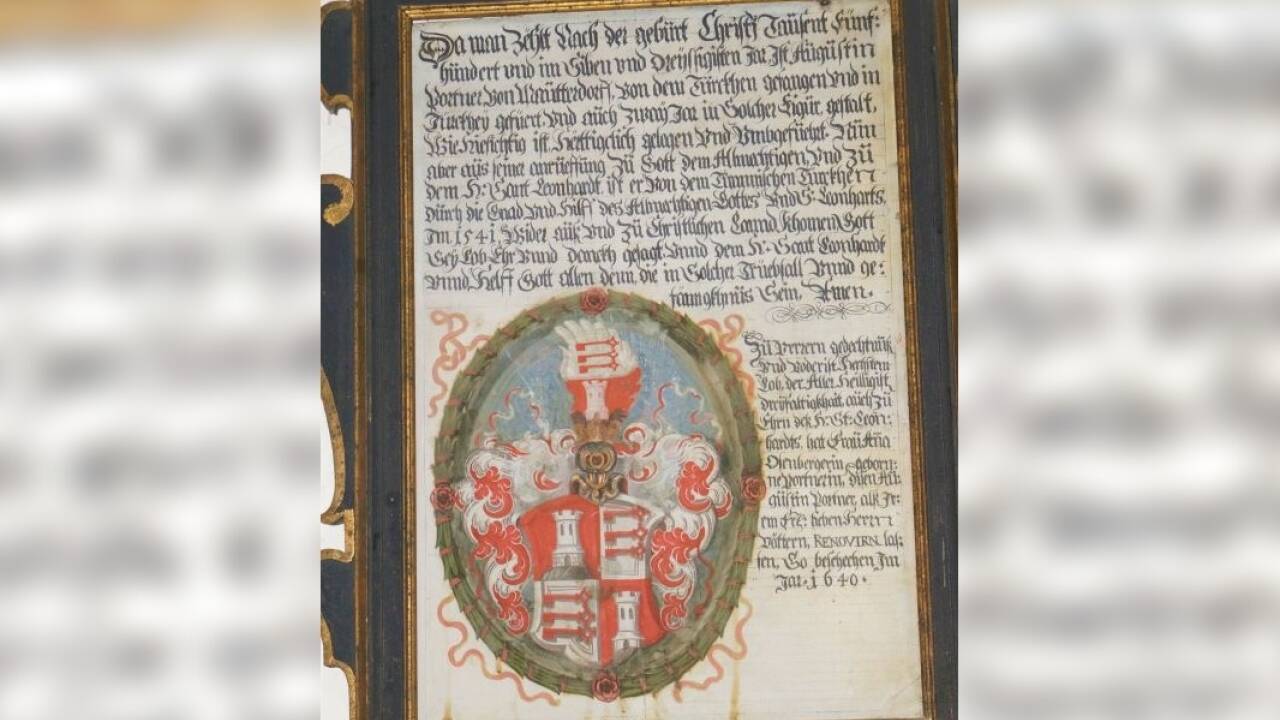 Da man Zehlt Nach der gebürt Christi Tausent Fünf:
hündert vnd im Siben vnd Dreyssigisten Jar Ist Augüstin
Portner Von Mautterdorff, von dem Türckhen gefangen Vnd in
Turckhey gefüert Vnd auch Zway Jar in Solcher Figür, gestalt,
Wie hiesichtig ist, hefftigclich gelegen Vnd Vmbgefüehrt. Nün
aber aüs seiner anrüeffüng Zü Gott dem Almachtigen, Vnd Zü
dem H: Sant Leonhardt ist er Von dem Tÿrannischen Türckhen
dürch die Gnad Vnd Hilff des Almachtigen Gottes Vnd S: Leonharts
Im 1541 Wider aüß Vnd Zü Christlichen Lannd khomen, Gott
Sey Lob Ehr Vnnd danckh gesagt, Vnnd dem H: Sant Leonhardt
Vnnd Helff Gott allen denn, die in Solcher Trüebsall Vnnd ge:
fanngkhnüs Sein, Amen.
Zü Verrern gedechtnüß
Vnd Voderist Hechstem
Lob, der Aller Heiligist
dreyfaltigkhait, aüch Zü
Ehrn deß H: St: Leon:
hardts, hat Fraü Aña
Ofenbergerin, geborn:
ne Portnerin, disen Aü
güstin Portner, alß Ir:
em Ere: lieben Herrn
Vöttern, RENOVIRN las:
sen, So beschechen Im
Jar. 1640.